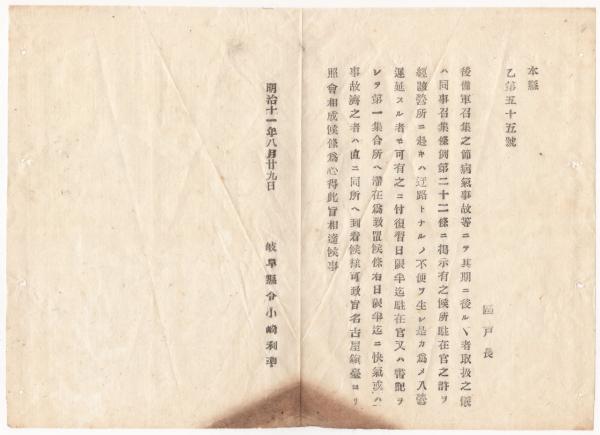 本縣
乙第五十五號
區戸長
後備軍召集之節病氣事故等ニテ其期ニ後ルヽ者取扱之儀
ハ同事召集條例第二十二條ニ掲示有之候所駐在官之許ヲ
經該營所ニ赴キハ迂路トナルノ不便ヲ生シ是カ爲メ入營
遅延スル者モ可有之ニ付復習日限半迄駐在官又ハ書記ヲ
シテ第一集合所ヘ滯在爲致置候條右日限半迄ニ快氣或ハ
事故濟之者ハ直ニ同所ヘ到着候樣可致旨名古屋鎭臺ヨリ
照會相成候條爲心得此旨相達候事
明治十一年八月廿九日
岐阜縣令小崎利準